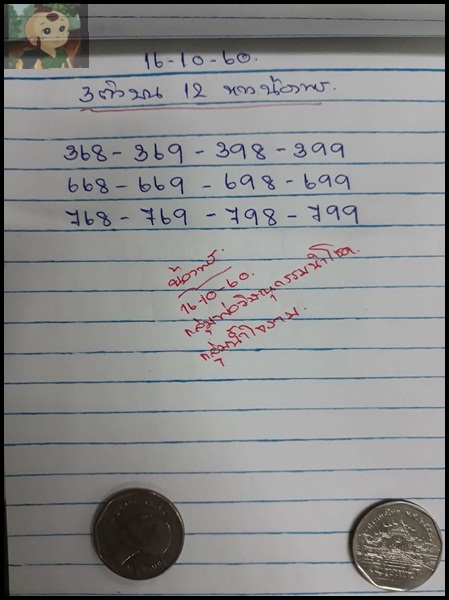 16-10-60.
3ตัวบน 12 หาง น้องพร.
368 - 369 - 398 - 399
668 - 669 - 698 - 699
768 - 769 - 798 - 799
น้องพร.
16-10-60.
กลุ่มพ่อวิษณุกรรมนำโชค
กลุ่มน้ำใจงาม.